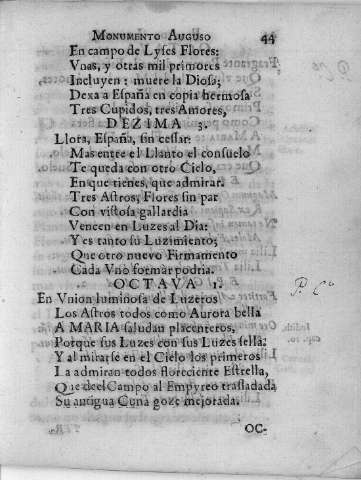 MONUMENTO AUGUSO 44
En campo de Lyses Flores:
Vnas, y otras mil primores
Incluyen: muere la Diosa;
Dexa a España en copia hermosa
Tres Cupidos, tres Amores,
DEZIMA 3.
Llora, España, sin cessar:
Mas entre el Llanto el consuelo
Te queda con otro Cielo,
En que tienes, que admirar.
Tres Astros, Flores sin par
Con vistosa gallardia
Vencen en Luzes al Dia:
Y es tanto su Luzimiento;
Que otro nuevo Firmamento
Cada Vno formar podria.
OCTAVA 1.
En Vnion luminosa de Luzeros
Los Astros todos como Aurora bella
A MARIA saludan placenteros,
Porque sus Luzes con sus Luzes sella:
Y al mirarse en el Cielo los primeros
La admiran todos floreciente Estrella,
Que deel Campo al Empyreo trasladada
Su antigua Cuna goze mejorada.
OC-